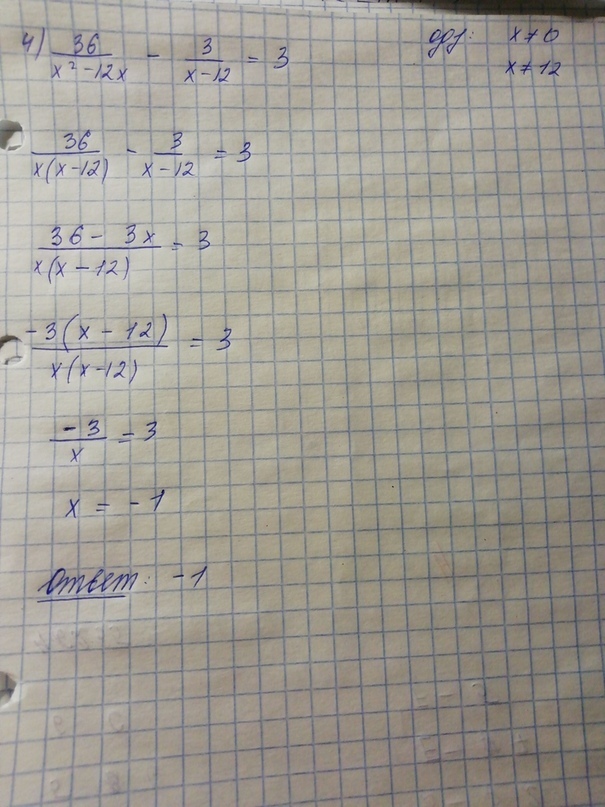 4) 36/(x² - 12x) - 3/(x - 12) = 3
одз: x ≠ 0
x ≠ 12
36/(x(x-12)) - 3/(x - 12) = 3
(36 - 3x)/(x(x - 12)) = 3
(-3(x - 12))/(x(x-12)) = 3
-3/x = 3
x = -1
Ответ: -1